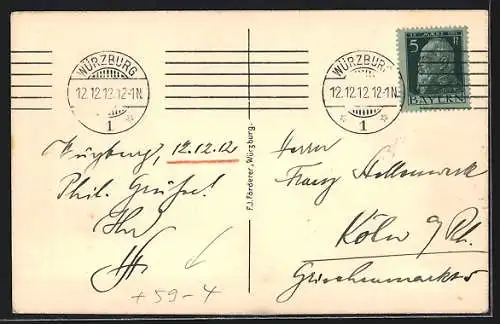 WÜRZBURG
12.12.12.12-1N.
1
WÜRZBURG
12.12.12.12-1N.
1
5 Pf
BAYERN
Würzburg, 12.12.12.
Phil. Grüsse!
Ihr
F.J. Förderer, Würzburg.
Herrn
Franz
Köln a/Rh.
Griechenmarkt
+59-4